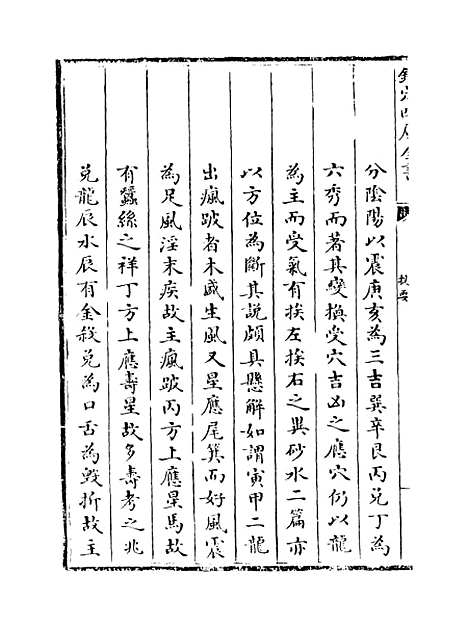 欽定四庫全書
提要
分陰陽以震庚亥為三吉巽辛艮丙兑丁為
六秀而著其變換受穴吉凶之應穴仍以龍
為主而受氣有挨左挨右之異砂水二篇亦
以方位為斷其說頗具懸解如謂寅甲二龍
出瘋跛者木盛生風又星應尾箕而好風震
為足風淫末疾故主瘋跛丙方上應星馬故
有蠶絲之祥丁方上應壽星故多壽考之兆
兑龍辰水辰有金殺兑為口舌為毁折故主